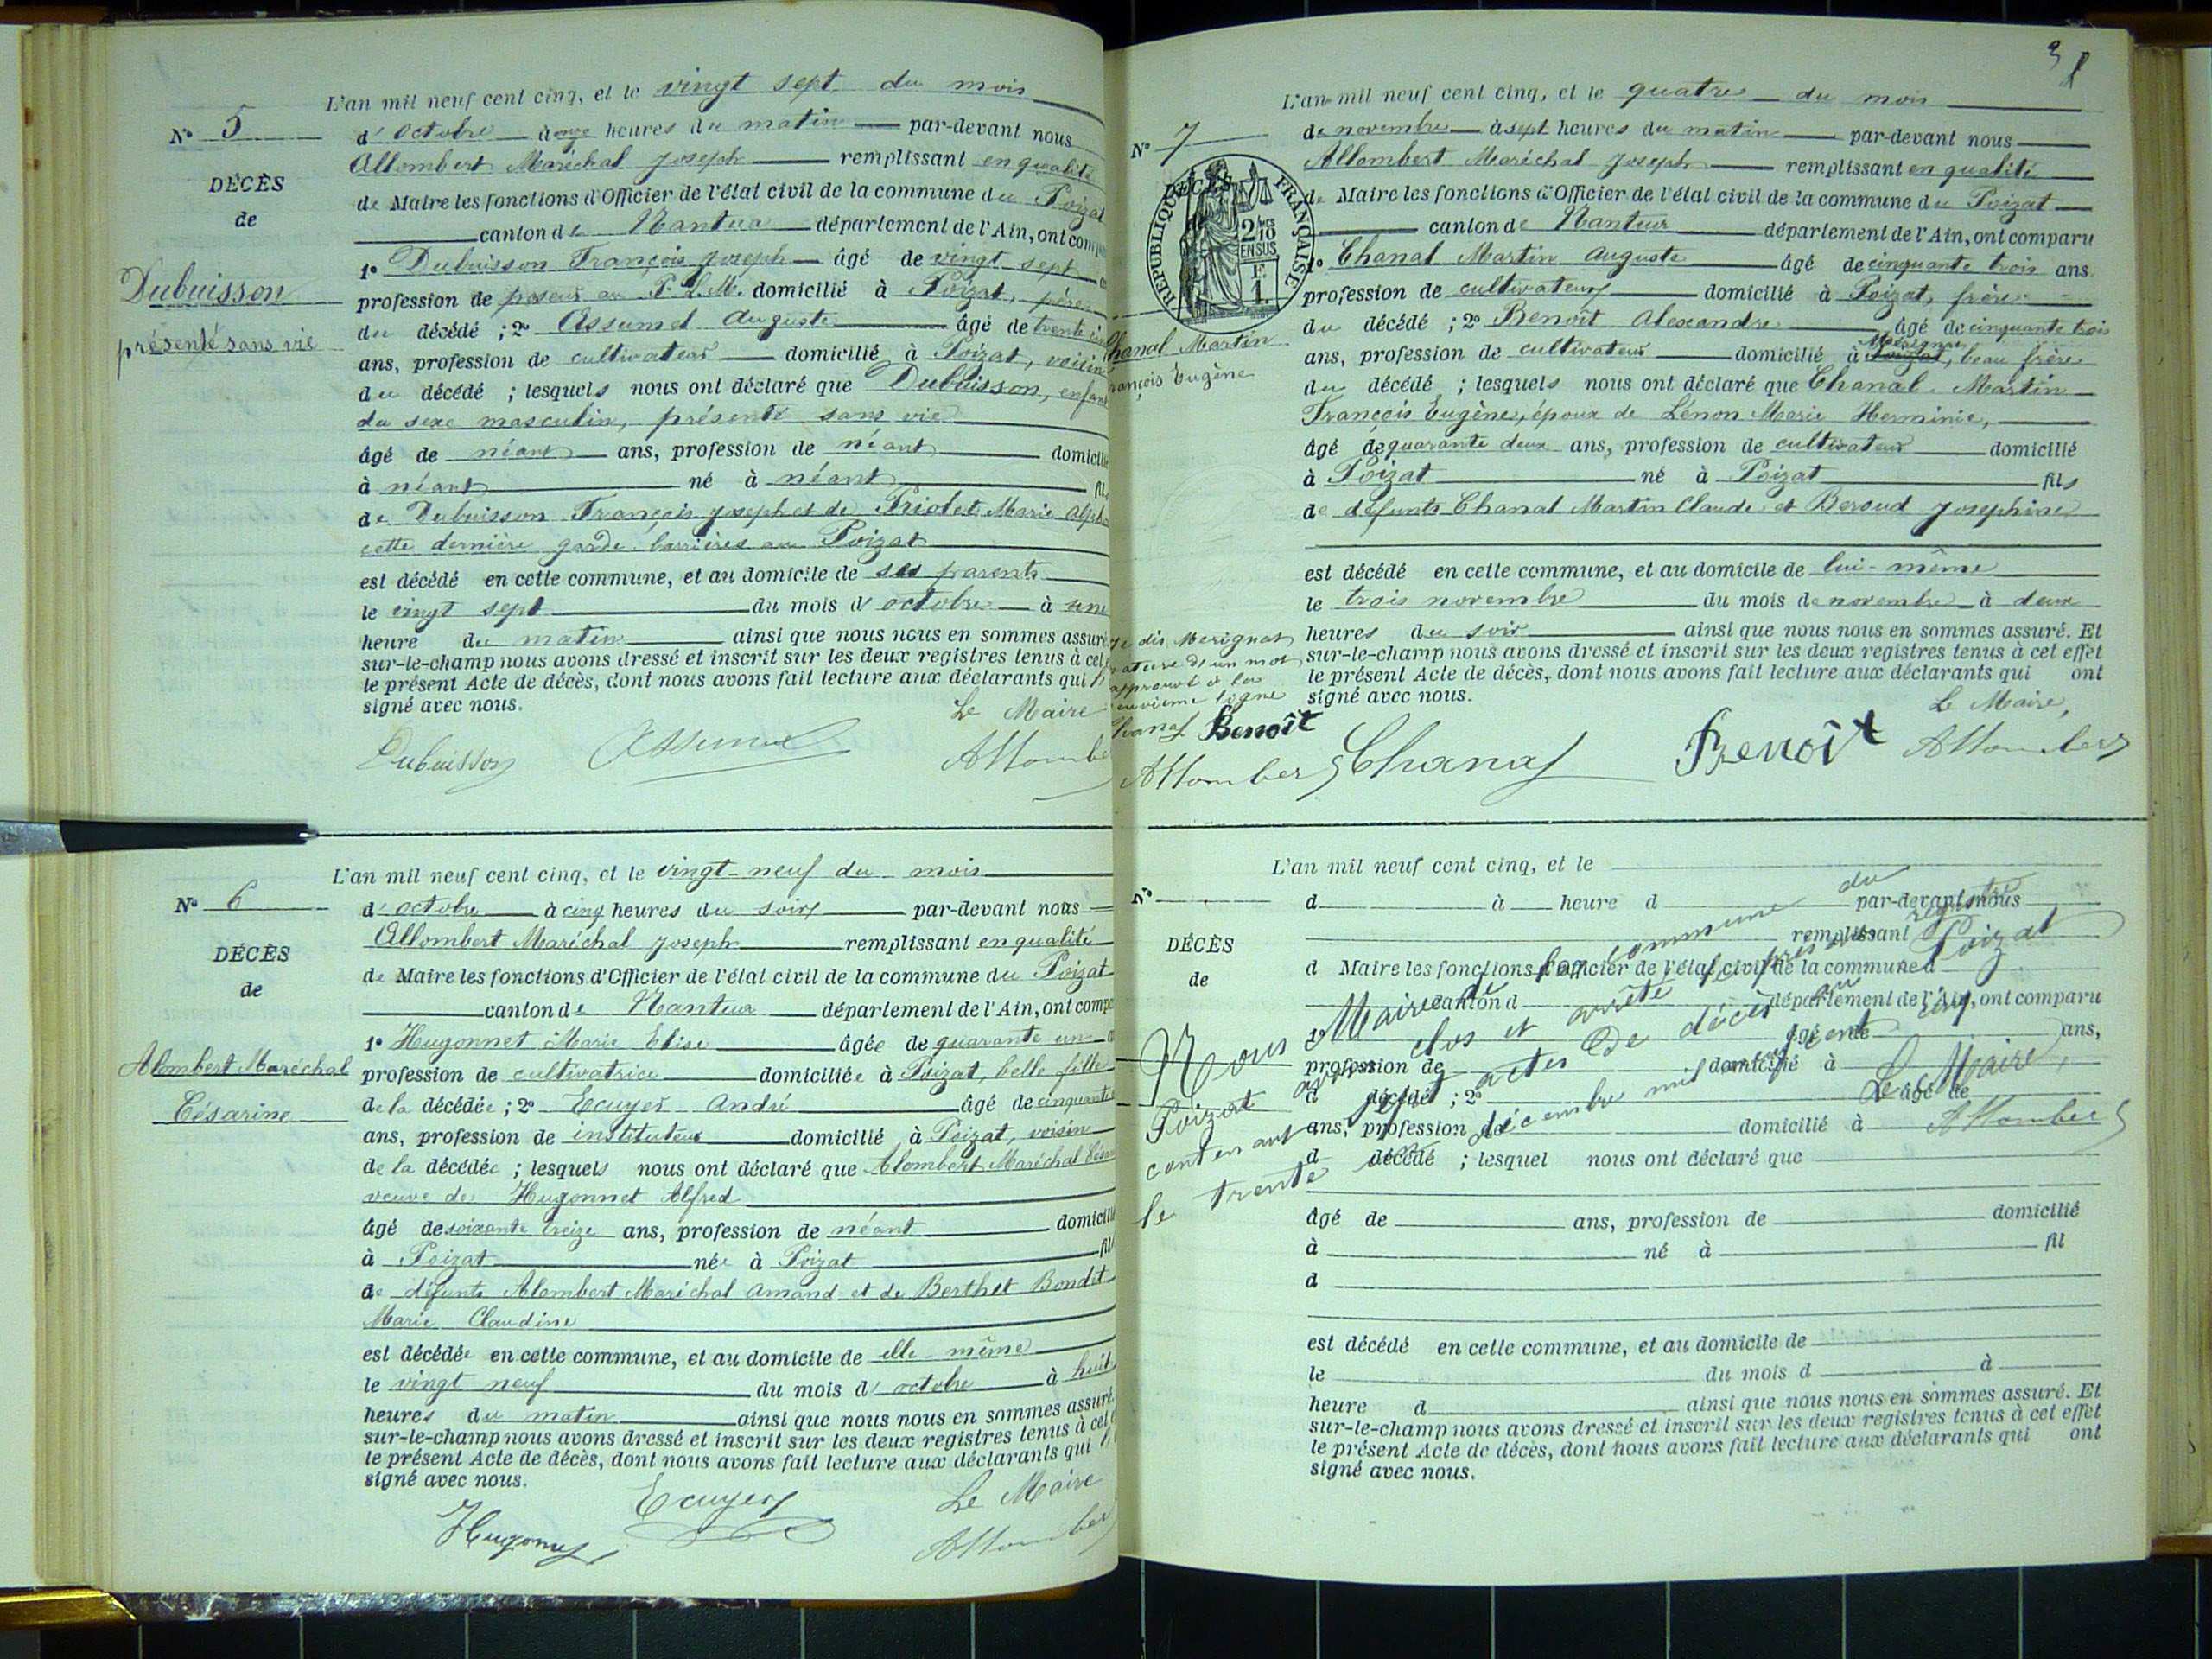 L'an mil neuf cent cinq, et le vingt sept du mois
N° 5
d'octobre à onze heures du matin par-devant nous
Allombert Maréchal Joseph remplissant en qualité
DÉCÈS
de Maire les fonctions d'Officier de l'état civil de la commune du Poizat
de
canton de Nantua département de l'Ain, ont comparu
1° Dubuisson François Joseph âgé de vingt sept
Dubuisson
profession de poseur au P.L.M. domicilié à Poizat, père
présenté sans vie
du décédé ; 2° Assumel Auguste âgé de trente
ans, profession de cultivateur domicilié à Poizat, voisin
du décédé ; lesquels nous ont déclaré que Dubuisson, enfant
du sexe masculin, présenté sans vie
âgé de néant ans, profession de néant domicilié
à néant né à néant fils
de Dubuisson François Joseph et de Friolet Marie
cette dernière garde barrières au Poizat
est décédé en cette commune, et au domicile de ses parents
le vingt sept du mois d'octobre à une
heure du matin ainsi que nous nous en sommes assuré
sur-le-champ nous avons dressé et inscrit sur les deux registres tenus à cet
le présent Acte de décès, dont nous avons fait lecture aux déclarants qui
signé avec nous.
Le Maire
Dubuisson Assumel Allombe
L'an mil neuf cent cinq, et le vingt-neuf du mois
N° 6
d'octobre à cinq heures du soir par-devant nous
Allombert Maréchal Joseph remplissant en qualité
DÉCÈS
de Maire les fonctions d'Officier de l'état civil de la commune du Poizat
de
canton de Nantua département de l'Ain, ont compa
1° Hugonnet Marie Elise âgée de quarante un
Alombert Maréchal
Césarine
profession de cultivatrice domiciliée à Poizat, belle fille
de la décédée ; 2° Ecuyer André âgé de cinquante
ans, profession de instituteur domicilié à Poizat, voisin
de la décédée ; lesquels nous ont déclaré que Alombert Maréchal César
veuve de Hugonnet Alfred
âgé de soixante treize ans, profession de néant domicilié
à Poizat née à Poizat fil
de défunts Alombert Maréchal Amand et de Berthet Bondet
Marie Claudine
est décédée en cette commune, et au domicile de elle-même
le vingt neuf du mois d'octobre à huit
heures du matin ainsi que nous nous en sommes assuré.
sur-le-champ nous avons dressé et inscrit sur les deux registres tenus à cet
le présent Acte de décès, dont nous avons fait lecture aux déclarants qui
signé avec nous.
Le Maire
Hugonnet Ecuyer Allomber
3
L'an mil neuf cent cinq, et le quatre du mois
N° 7
de novembre à sept heures du matin par-devant nous
Allombert Maréchal Joseph remplissant en qualité
DÉCÈS
RÉPUBLIQUE FRANÇAISE
2/10
EN SUS
F.
1.
de Maire les fonctions d'Officier de l'état civil de la commune du Poizat
canton de Nantua département de l'Ain, ont comparu
1° Chanal Martin Auguste âgé de cinquante trois ans.
profession de cultivateur domicilié à Poizat, frère
du décédé ; 2° Benoît Alexandre âgé de cinquante trois
hanal Martin
rançois Eugène
Mérignat
ans, profession de cultivateur domicilié à Poizat, beau frère
du décédé ; lesquels nous ont déclaré que Chanal Martin
François Eugène, époux de Lénon Marie Herminie,
âgé de quarante deux ans, profession de cultivateur domicilié
à Poizat né à Poizat fils
de défunts Chanal Martin Claude et Beroud Josephine
est décédé en cette commune, et au domicile de lui-même
le trois novembre du mois de novembre à deux
heures du soir ainsi que nous nous en sommes assuré. Et
sur-le-champ nous avons dressé et inscrit sur les deux registres tenus à cet effet
le présent Acte de décès, dont nous avons fait lecture aux déclarants qui ont
signé avec nous.
Je dis Mérignat
rature d'un mot
approuvé à la
euvième ligne
Chanal Benoît
Allomber
Le Maire,
Chanal Benoît Allomber
L'an mil neuf cent cinq, et le
N°
d à heure d par-devant nous
remplissant
DÉCÈS
d Maire les fonctions d'Officier de l'état civil de la commune d
de
canton d département de l'Ain, ont comparu
1° âgé de ans,
profession de domicilié à
d décédé ; 2° âgé de
ans, profession de domicilié à
d décédé ; lesquel nous ont déclaré que
âgé de ans, profession de domicilié
à né à fil
d
est décédé en cette commune, et au domicile de
le du mois d à
heure d ainsi que nous nous en sommes assuré. Et
sur-le-champ nous avons dressé et inscrit sur les deux registres tenus à cet effet
le présent Acte de décès, dont nous avons fait lecture aux déclarants qui ont
signé avec nous.
Nous Maire de la commune du
Poizat avons clos et arrêté le présent registre
contenant sept actes de décès au Poizat
le trente et un décembre mil neuf cent cinq
Le Maire,
Allomber